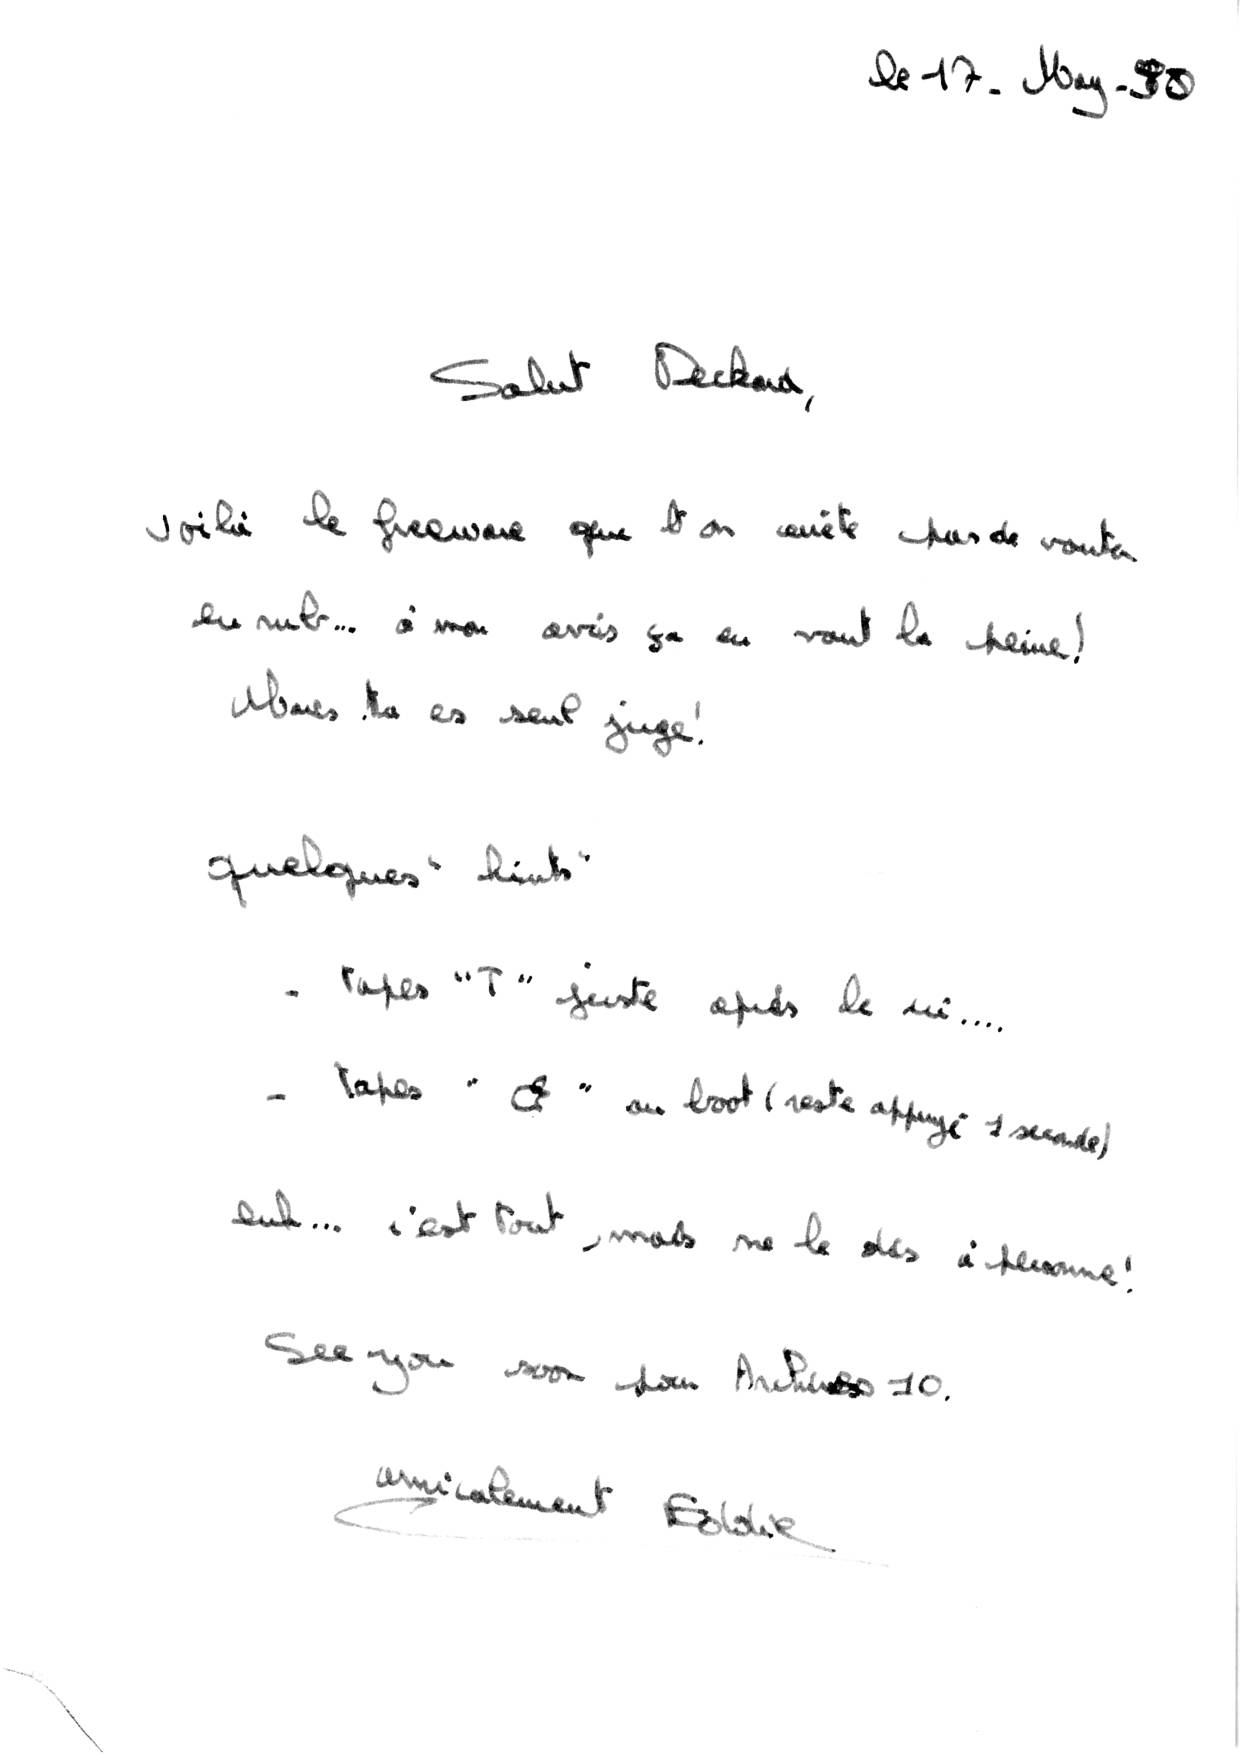 le 17 - May - 90
Salut Deckard,
Voilà le freeware que l'on arrête pas de vanter
en rub... à mon avis ça en vaut la peine!
Mais tu es seul juge!
quelques "hints"
- tapes "T" juste après le ... 
- tapes " " au boot (reste appuyé 1 seconde)
euh... c'est tout, mais ne le dis à personne!
See you soon pour Archives 10.
amicalement Eddie